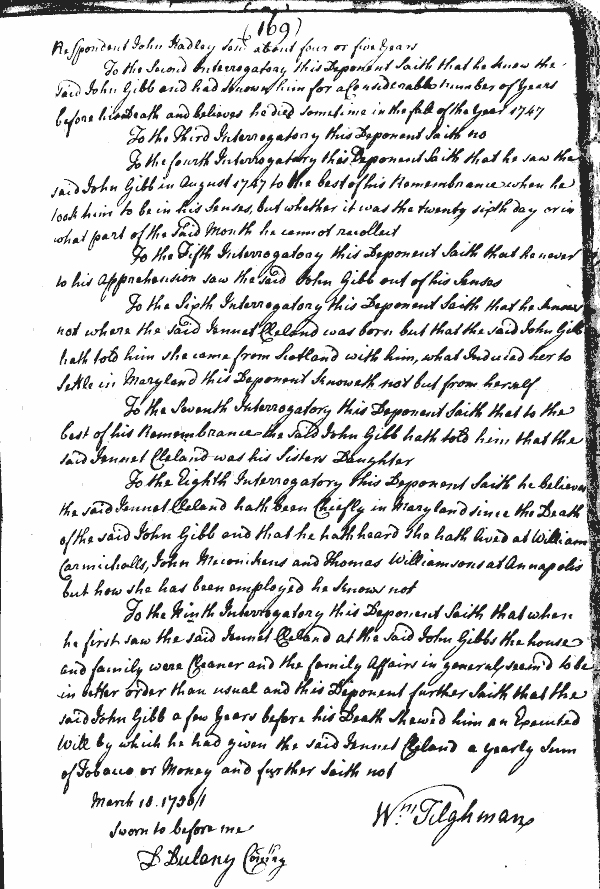 (169)
Respondent John Hadley Senr. about four or five Years
To the Second Interrogatory this Deponent Saith that he knew the
said John Gibb and had known him for a Considerable number of Years
before his Death and believes he died sometime in the fall of the Year 1747
To the Third Interrogatory this Deponent Saith no
To the fourth Interrogatory this Deponent Saith that he saw the
said John Gibb in August 1747 to the best of his Remembrance when he
look him to be in his Senses, but whether it was the twenty sixth day or in
what part of the Said Month he cannot recollect
To the Fifth Interrogatory this Deponent Saith that he never
to his Apprehension saw the said John Gibb out of his Senses
To the Sixth Interrogatory this Deponent Saith that he knows
not where the said Jennet Cleland was born but that the said John Gibb
hath told him she came from Scotland with him, what Induced her to
Settle in Maryland this Deponent knoweth not but from herself
To the Seventh Interrogatory this Deponent Saith that to the
best of his Remembrance the said John Gibb hath told him that the
said Jennet Cleland was his Sisters Daughter
To the Eighth Interrogatory this Deponent Saith he believes
the said Jennet Cleland hath been Chiefly in Maryland since the Death
of the said John Gibb and that he hath heard she hath lived at William
Carmichalls, John Meconikens and Thomas Williamsons at Annapolis
but how she has been employed he knows not
To the Ninth Interrogatory this Deponent Saith that when
he first saw the said Jennet Cleland at the said John Gibbs the house
and family were Cleaner and the family Affairs in general seem'd to be
in better order than usual and this Deponent further Saith that the
said John Gibb a few Years before his Death Shewed him an Executed
Will by which he had given the said Jennet Cleland a yearly Sum
of Tobacco or Money and further Saith not
March 18. 1750/1
Sworn to before me
Wm. Tilghman
D Dulany